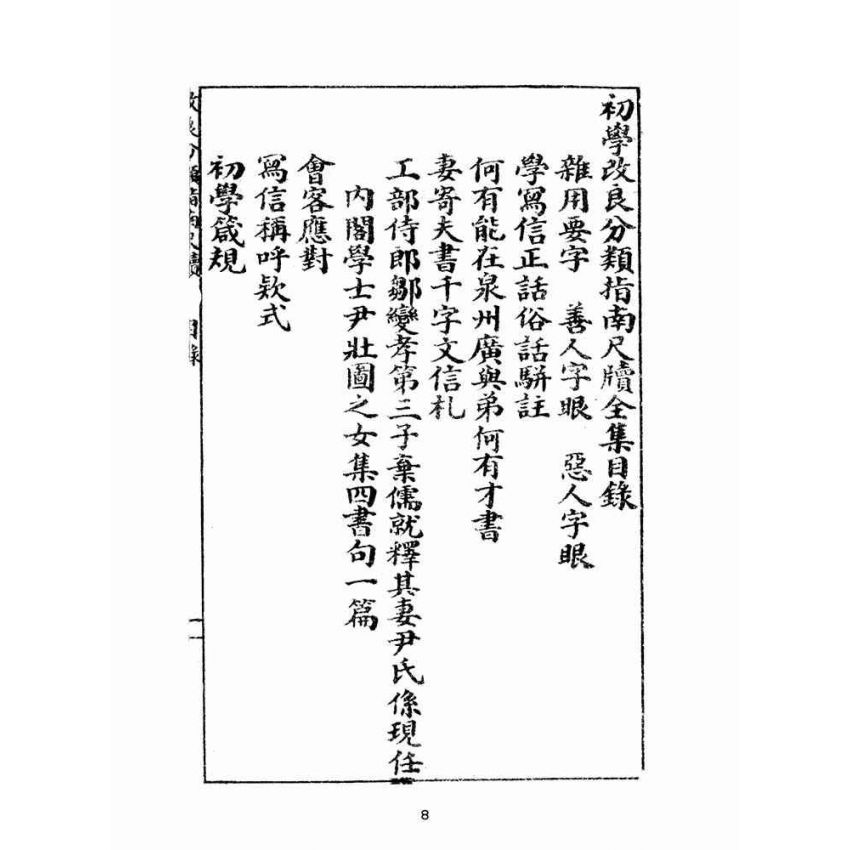 初學改良分類指南尺牘全集目錄
雜用要字　善人字眼　惡人字眼
學寫信正話俗話駢註
何有能在泉州廣與弟何有才書
妻寄夫書千字文信札
工部侍郎鄒孿孝第三子棄儒就釋其妻尹氏係現任
內閣學士尹壯圖之女集四書句一篇
會客應對
寫信稱呼欵式
初學箴規
改良分類指南尺牘　目錄　二
8